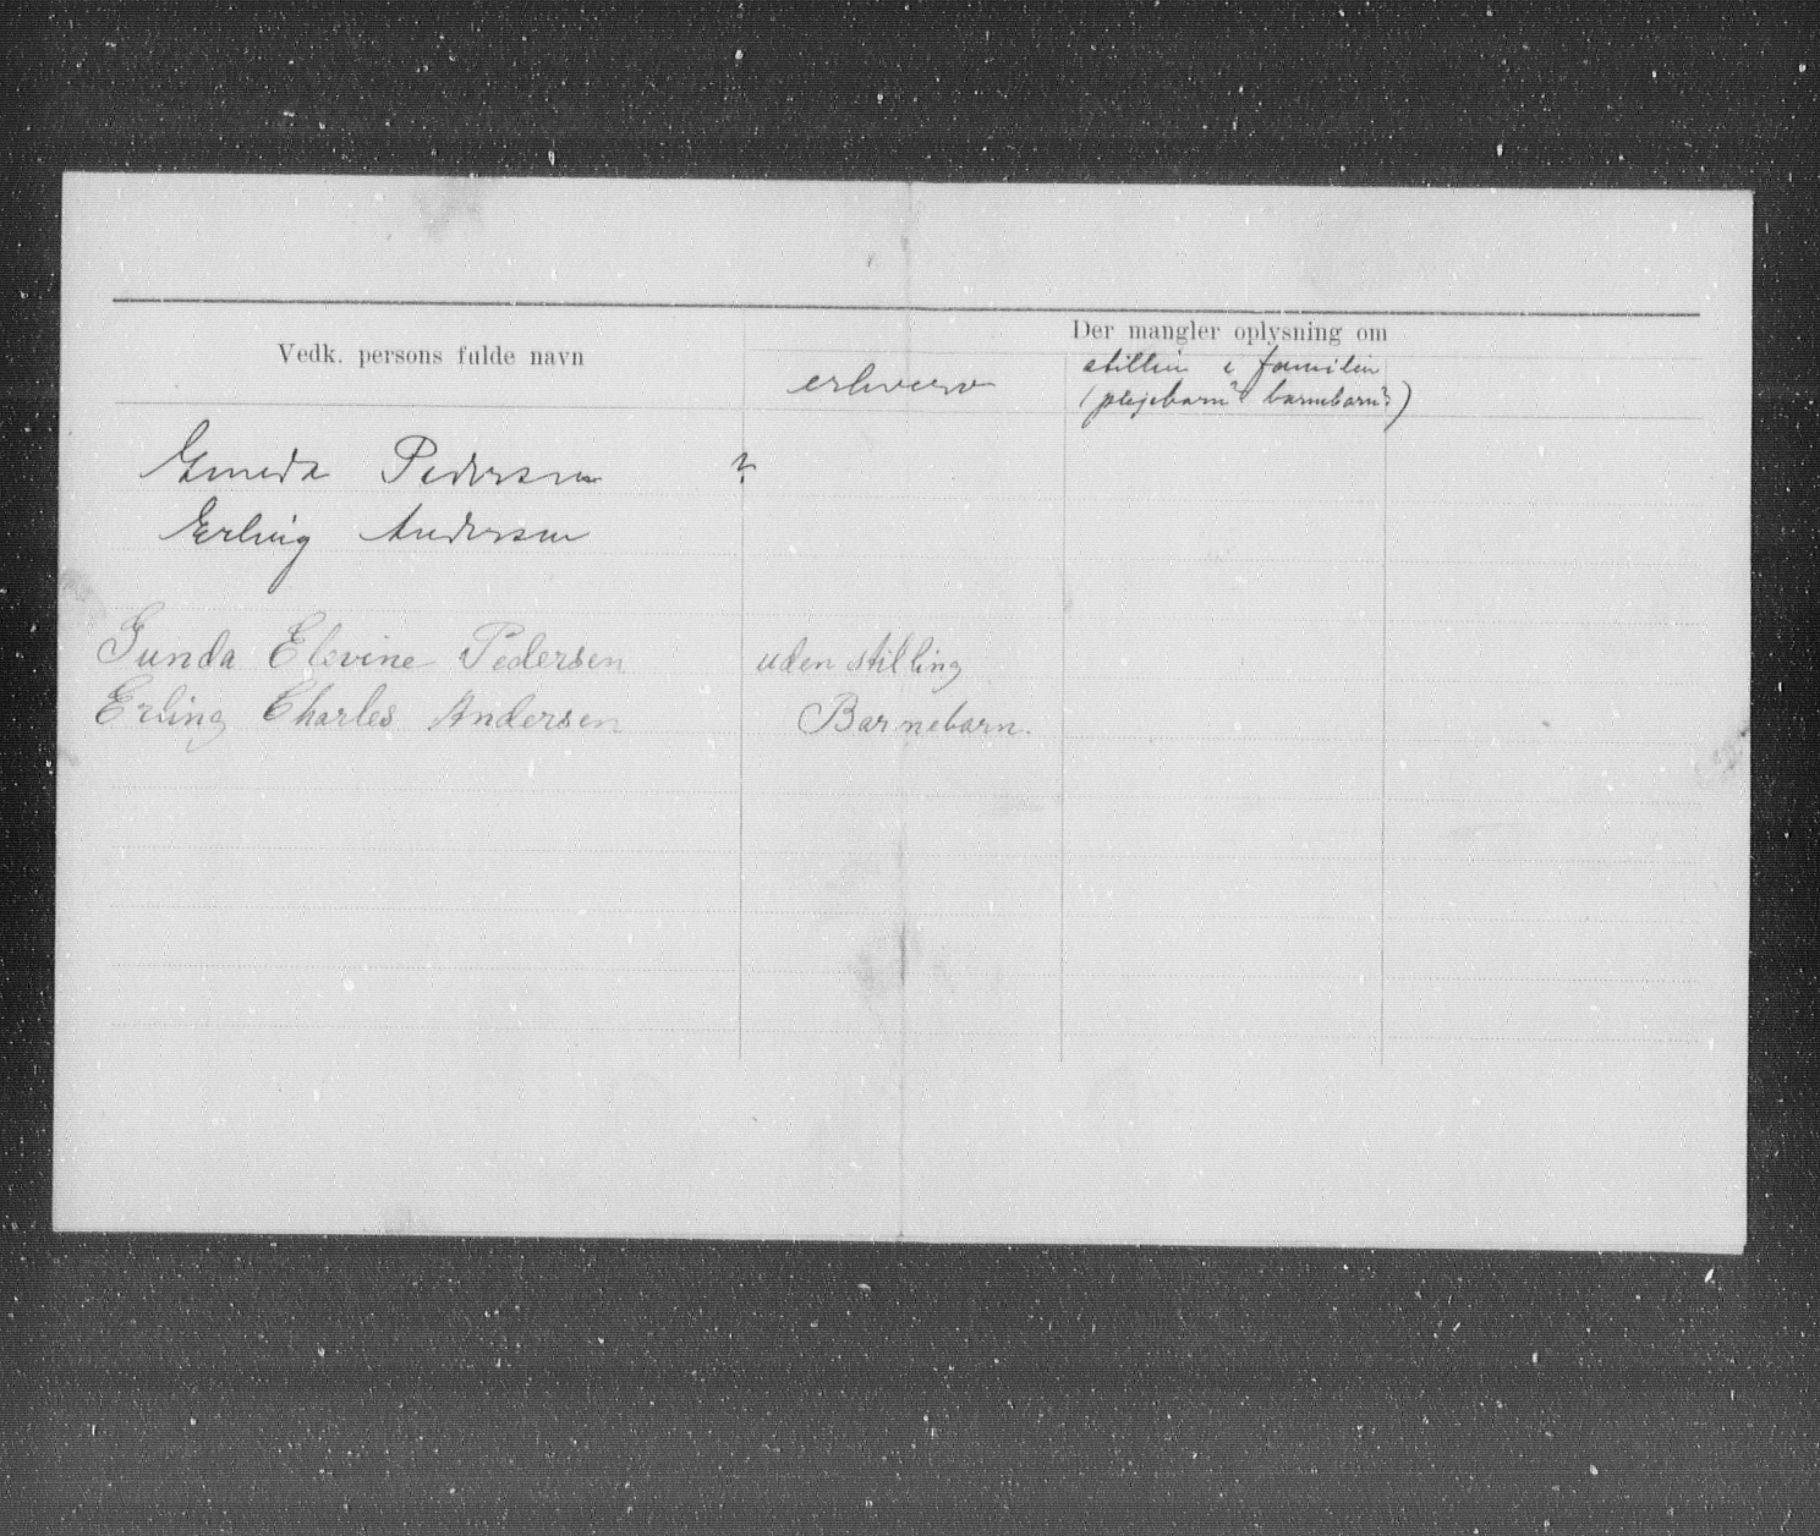 Vedk. persons fulde navn
Der mangler oplysning om
erhverv
stillin i familien
(plejebarn? barnebarn?)
Gunda Pedersen ?
Erling Andersen
Gunda Elevine Pedersen uden stilling
Erling Charles Andersen Barnebarn.